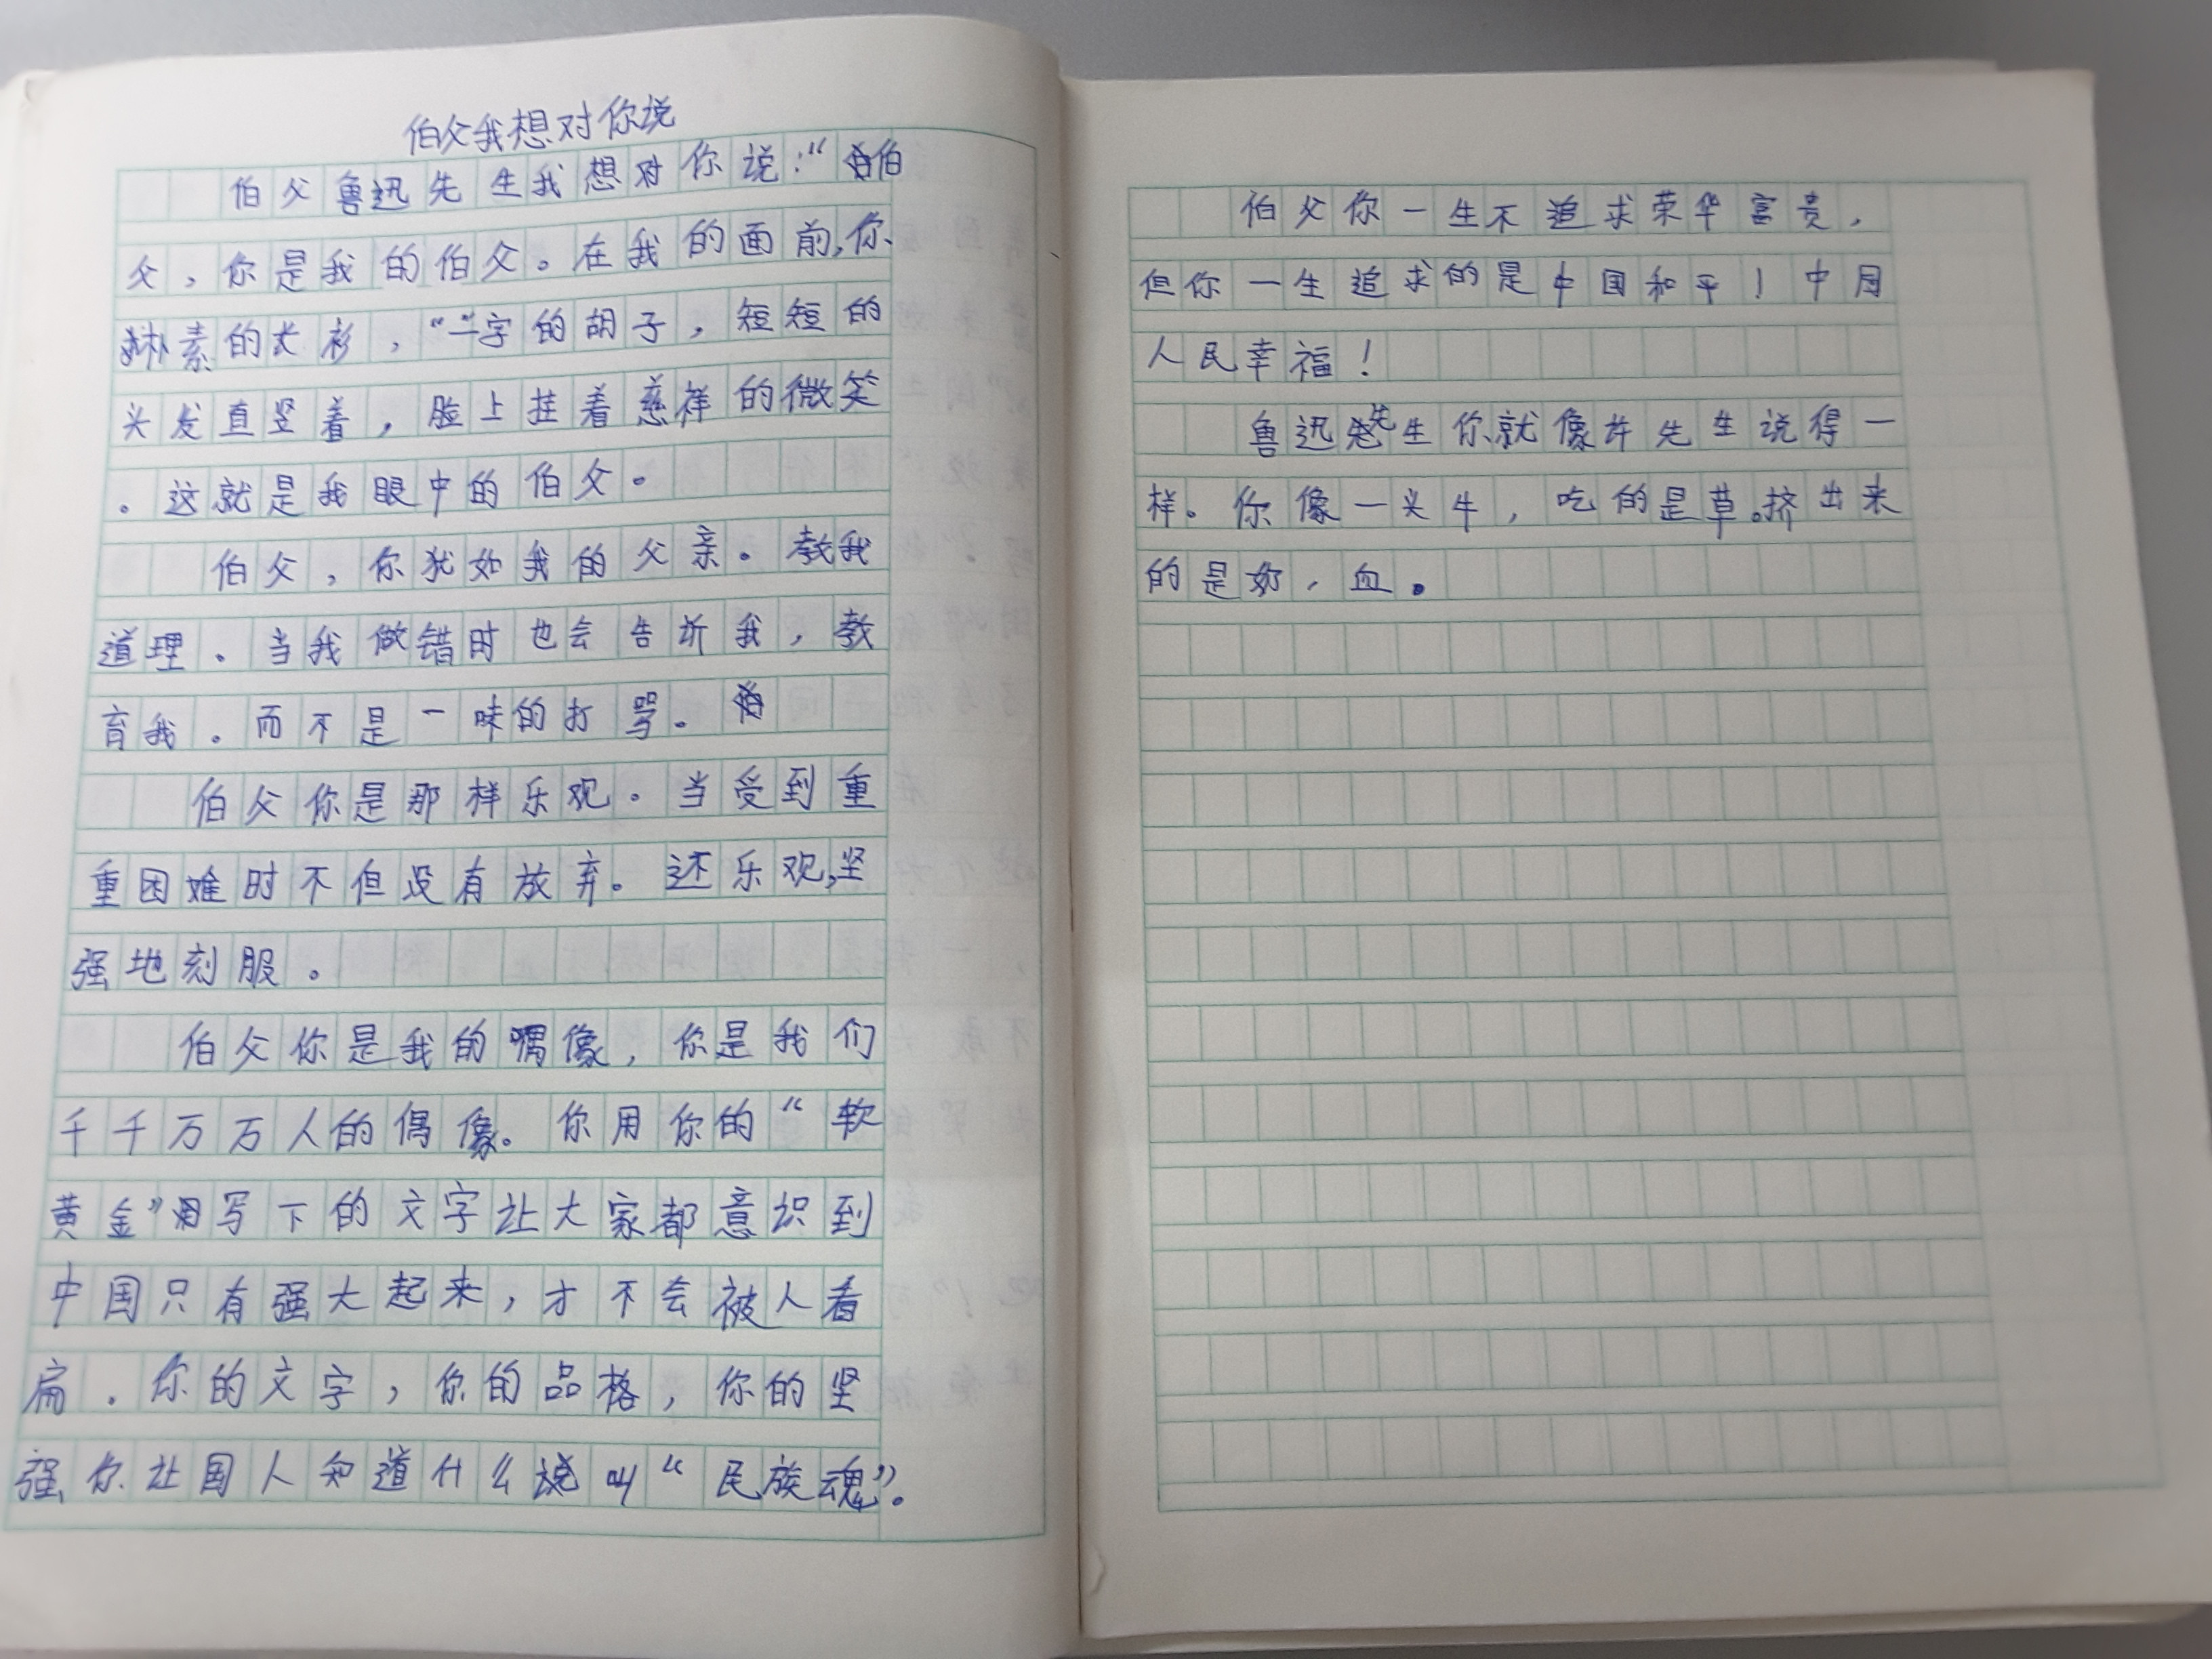 伯父我想对你说
伯父鲁迅先生我想对你说：“伯
父，你是我的伯父。在我的面前，你
朴素的大衫，“一”字的胡子，短短的
头发直竖着，脸上挂着慈祥的微笑
。这就是我眼中的伯父。
伯父，你犹如我的父亲。教我
道理。当我做错时也会告诉我，教
育我。而不是一味的打骂。
伯父你是那样乐观。当受到重
重困难时不但没有放弃。还乐观，坚
强地刻服。
伯父你是我的偶像，你是我们
千千万万人的偶像。你用你的“软
黄金”写下的文字让大家都意识到
中国只有强大起来，才不会被人看
扁。你的文字，你的品格，你的坚
强你让国人知道什么叫“民族魂”。
伯父你一生不追求荣华富贵，
但你一生追求的是中国和平！中国
人民幸福！
鲁迅先生你就像许先生说得一
样。你像一头牛，吃的是草。挤出来
的是奶，血。